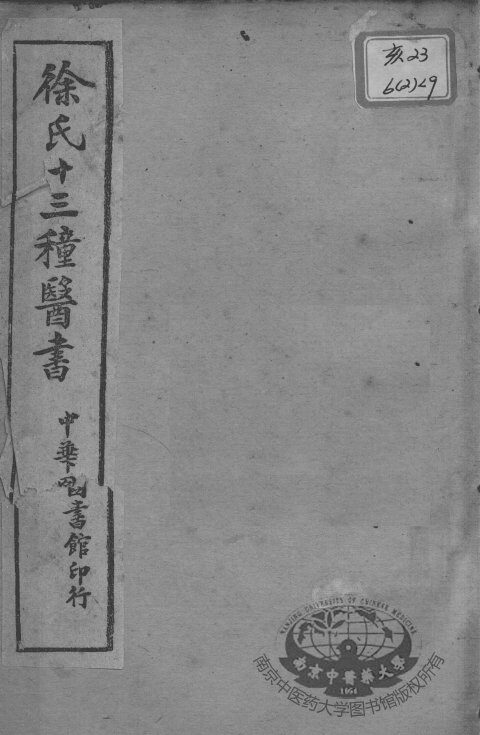 徐氏十三種醫書
中華圖書館印行
亥23
6(2)<9
NANJING UNIVERSITY OF CHINESE MEDICINE
南京中醫藥大學
1954
南京中医药大学图书馆版权所有